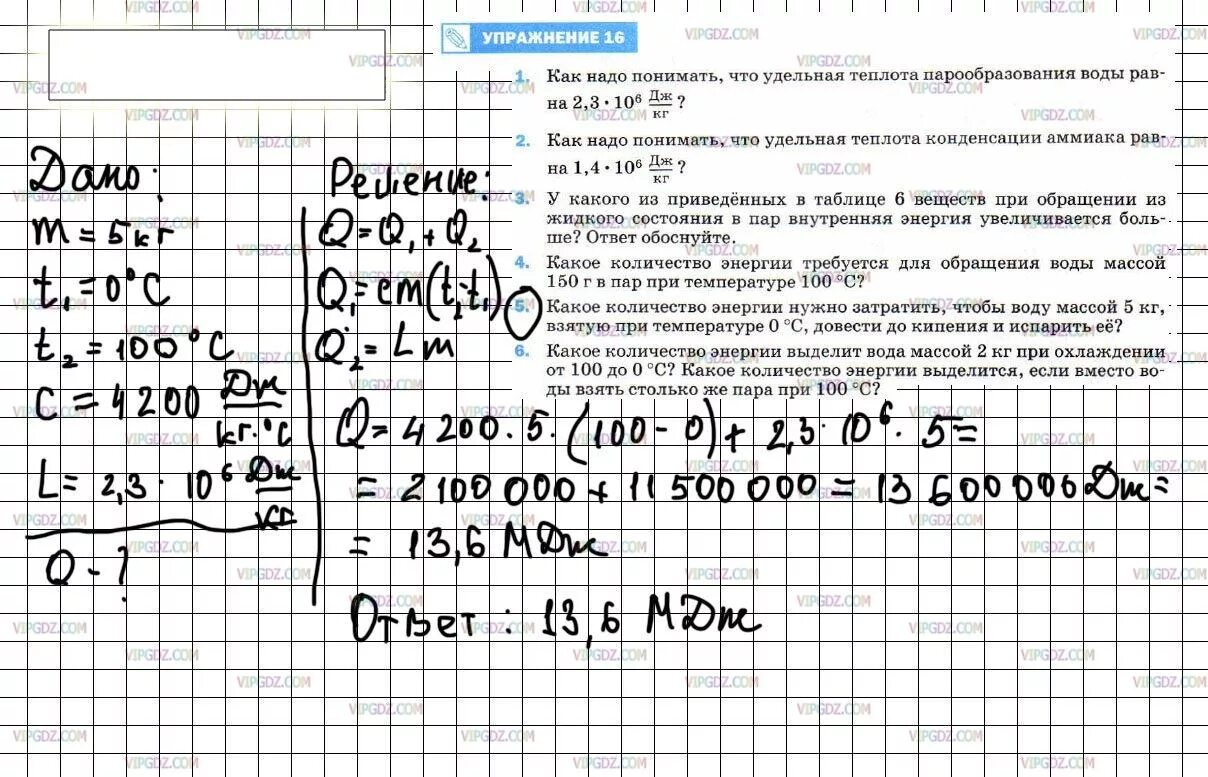 УПРАЖНЕНИЕ 16
1. Как надо понимать, что удельная теплота парообразования воды рав-
на 2,3 · 10⁶ Дж/кг ?
2. Как надо понимать, что удельная теплота конденсации аммиака рав-
на 1,4 · 10⁶ Дж/кг ?
3. У какого из приведённых в таблице 6 веществ при обращении из
жидкого состояния в пар внутренняя энергия увеличивается боль-
ше? Ответ обоснуйте.
4. Какое количество энергии требуется для обращения воды массой
150 г в пар при температуре 100 °С?
5. Какое количество энергии нужно затратить, чтобы воду массой 5 кг,
взятую при температуре 0 °С, довести до кипения и испарить её?
6. Какое количество энергии выделит вода массой 2 кг при охлаждении
от 100 до 0 °С? Какое количество энергии выделится, если вместо во-
ды взять столько же пара при 100 °С?
Дано:
m = 5 кг
t₁ = 0°C
t₂ = 100°C
c = 4200 Дж/кг·°C
L = 2,3 · 10⁶ Дж/кг
Q - ?
Решение:
Q = Q₁ + Q₂
Q₁ = cm(t₂-t₁)
Q₂ = Lm
Q = 4200 · 5 · (100 - 0) + 2,3 · 10⁶ · 5 =
= 2100 000 + 11 500 000 = 13 600 000 Дж =
= 13,6 МДж
Ответ : 13,6 МДж
VIPGDZ.COM